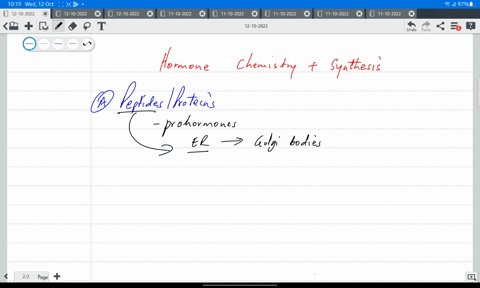 10:19 Wed, 12 Oct 97%
12-10-2022 12-10-2022 12-10-2022 11-10-2022 11-10-2022 11-10-2022 11-10-2022 11-10-2022
12-10-2022 Undo Redo
Hormone Chemistry + Synthesis
(A) Peptides/Proteins
- prohormones
ER → Golgi bodies
2/2 Page